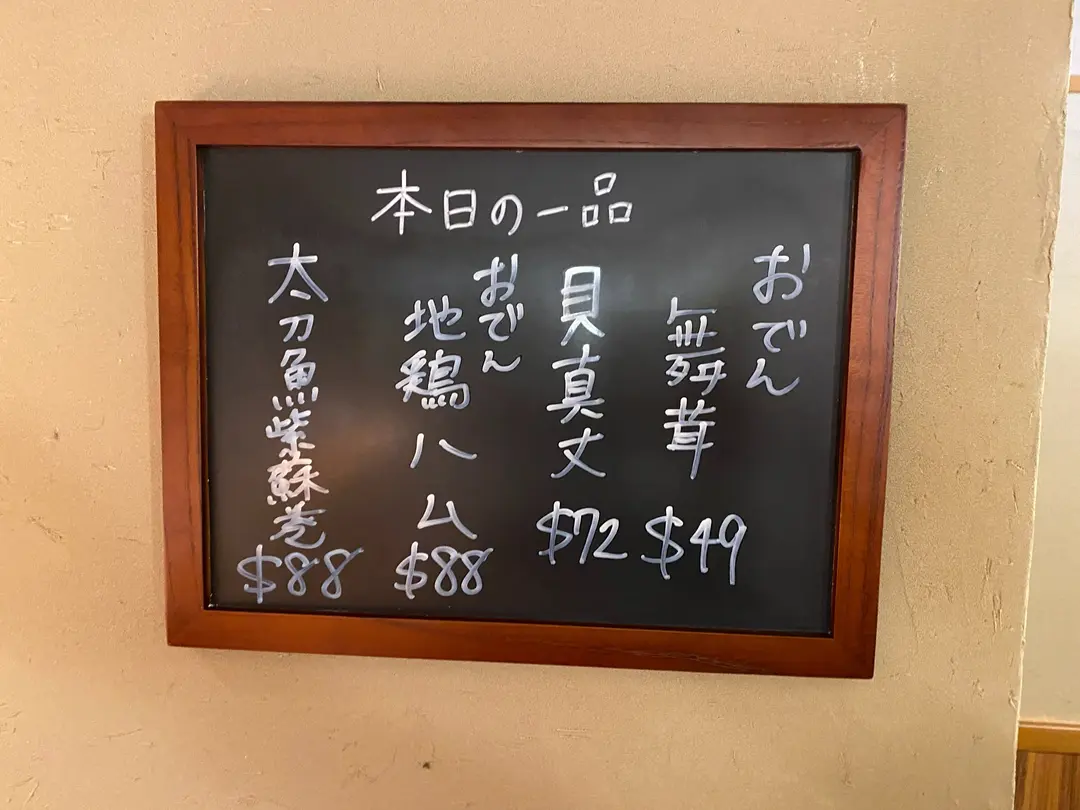 本日の一品
おでん
舞茸
$49
貝真丈
$72
おでん
地鶏ハム
$88
太刀魚紫蘇巻
$88